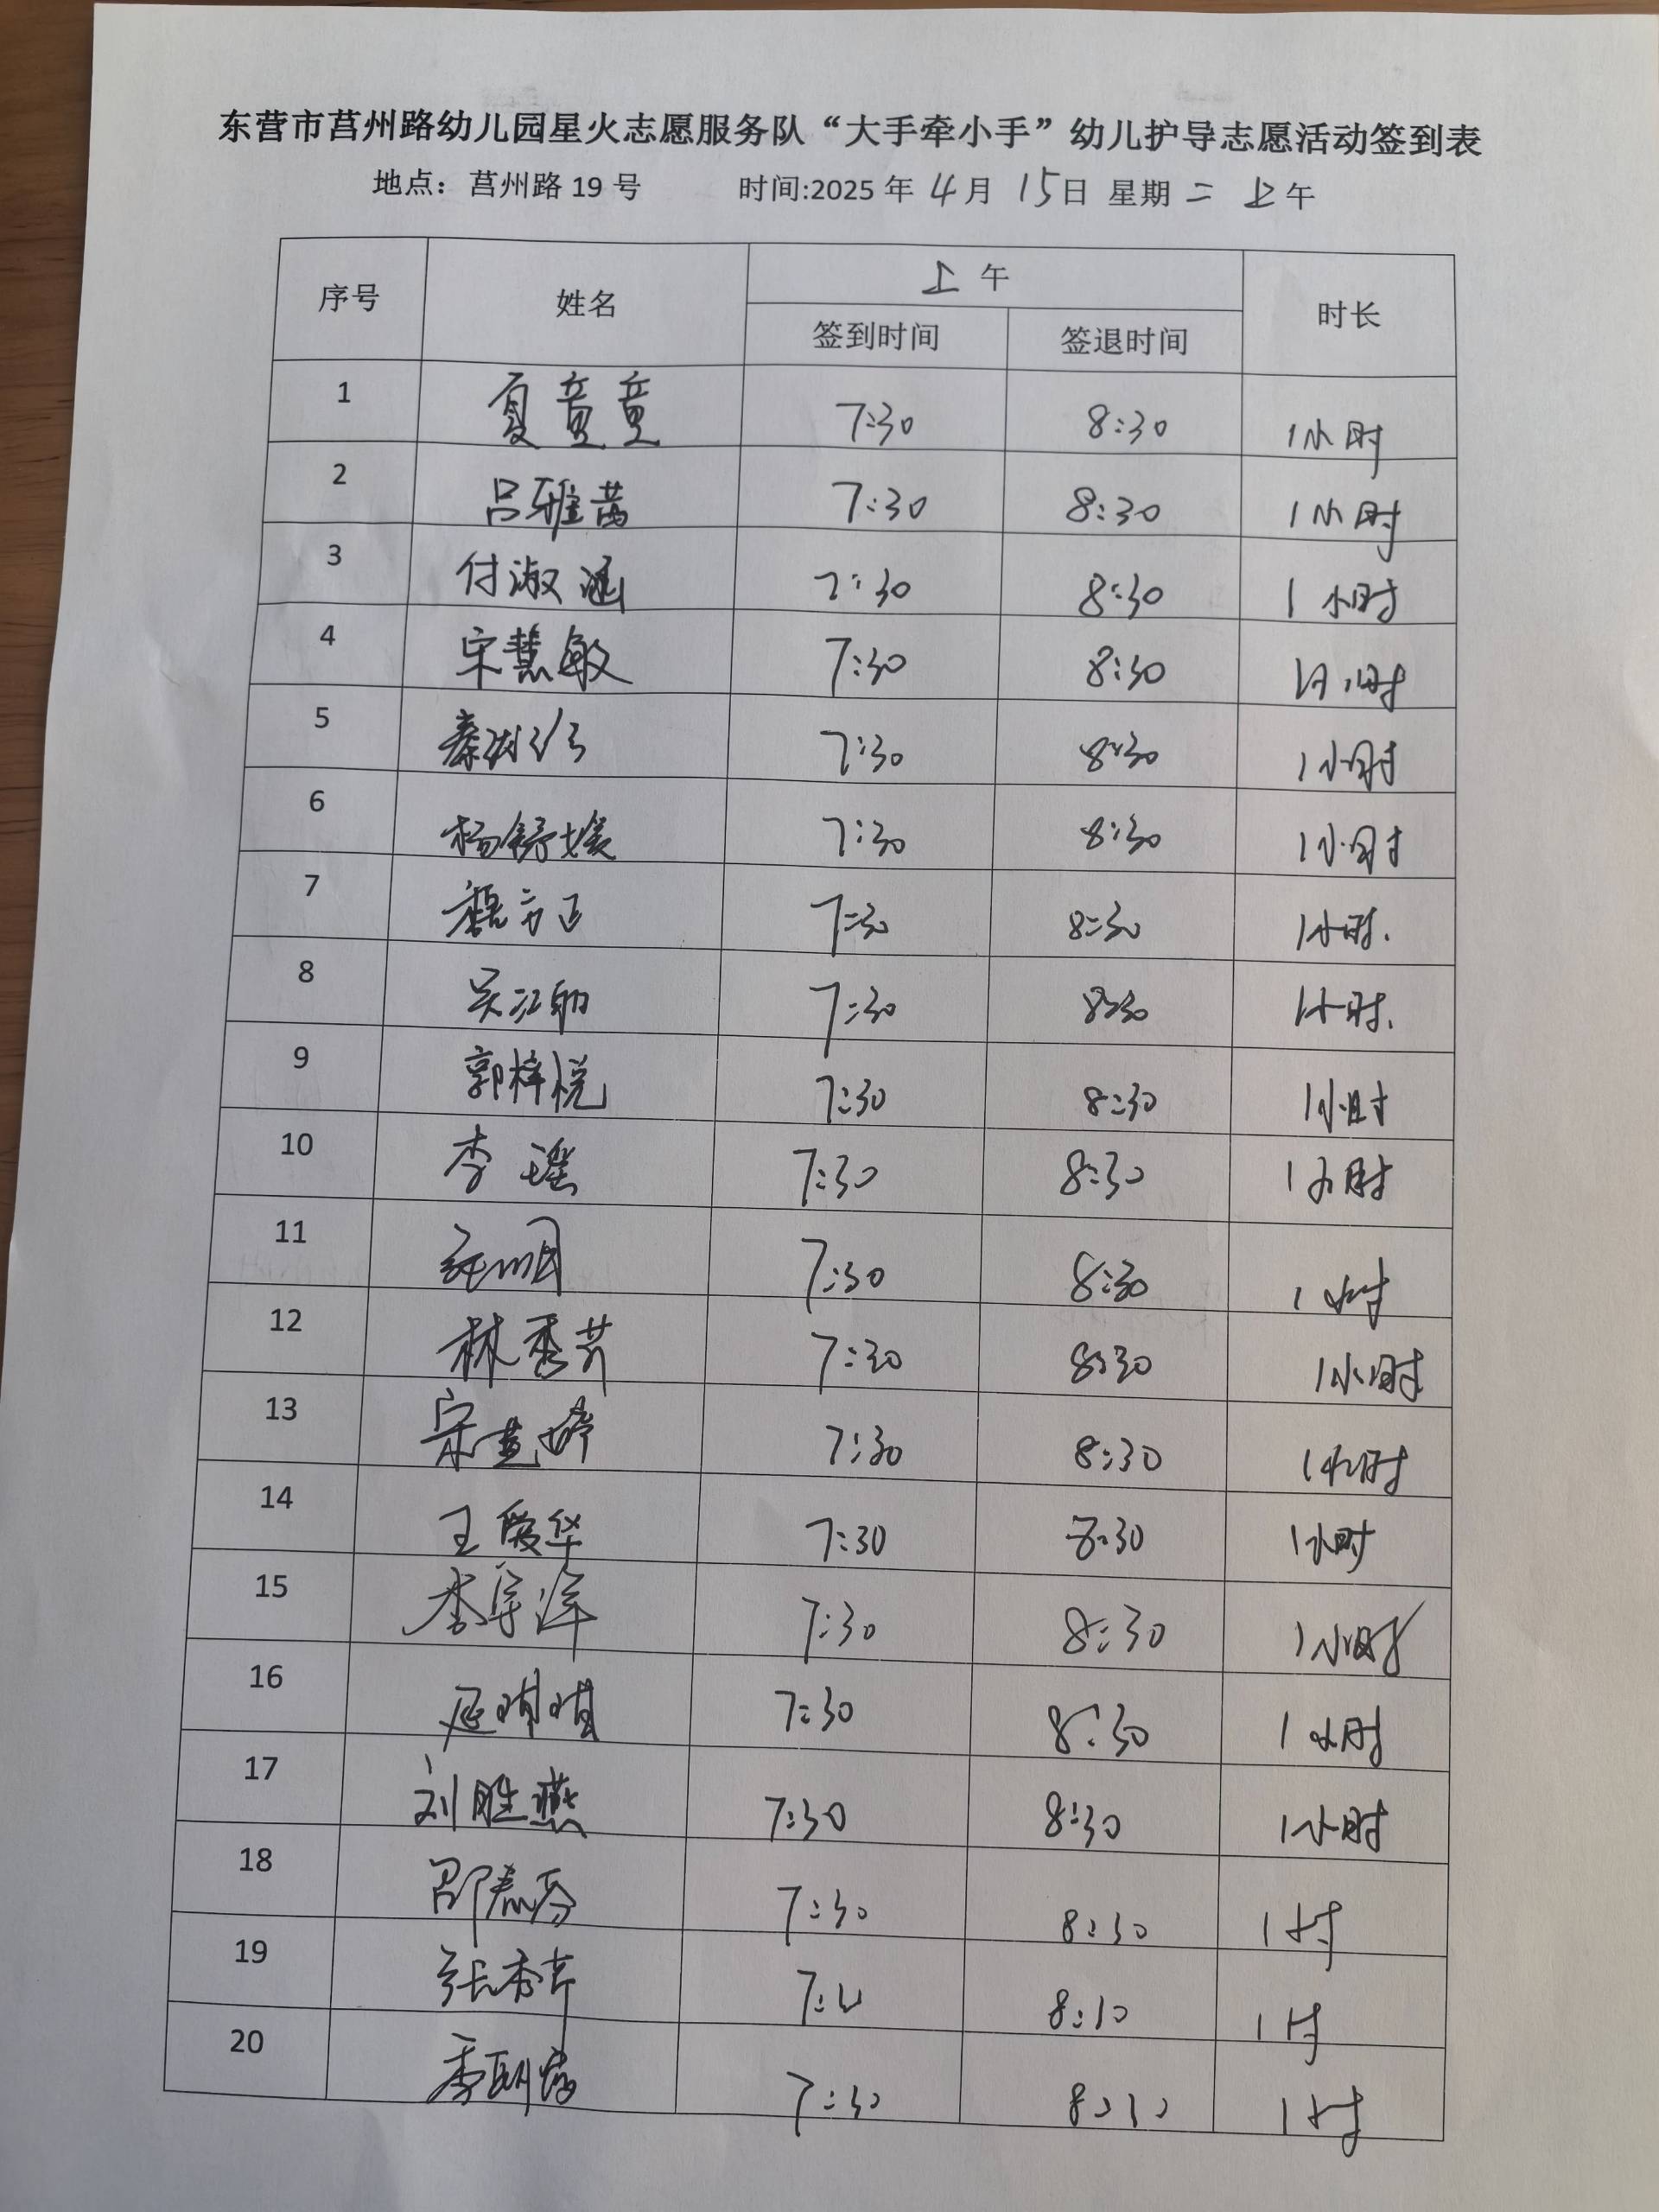 东营市莒州路幼儿园星火志愿服务队“大手牵小手”幼儿护导志愿活动签到表
地点：莒州路 19 号 时间:2025 年 4 月 15日 星期 二 上午
序号 姓名 上 午 时长
签到时间 签退时间
1 夏童童 7:30 8:30 1小时
2 吕雅茜 7:30 8:30 1小时
3 付淑涵 7:30 8:30 1小时
4 宋慧敏 7:30 8:30 1小时
5 秦 7:30 8:30 1小时
6 杨舒媛 7:30 8:30 1小时
7 魏方正 7:30 8:30 1小时.
8 吴江 7:30 8:30 1小时.
9 郭梓悦 7:30 8:30 1小时
10 李瑶 7:30 8:30 1小时
11 7:30 8:30 1小时
12 林秀芹 7:30 8:30 1小时
13 宋 7:30 8:30 1小时
14 王爱华 7:30 8:30 1小时
15 李宇洋 7:30 8:30 1小时
16 琪琪 7:30 8:30 1小时
17 刘胜燕 7:30 8:30 1小时
18 邵春芬 7:30 8:30 1小时
19 张秀芹 1小时
20 李 7:30 1小时